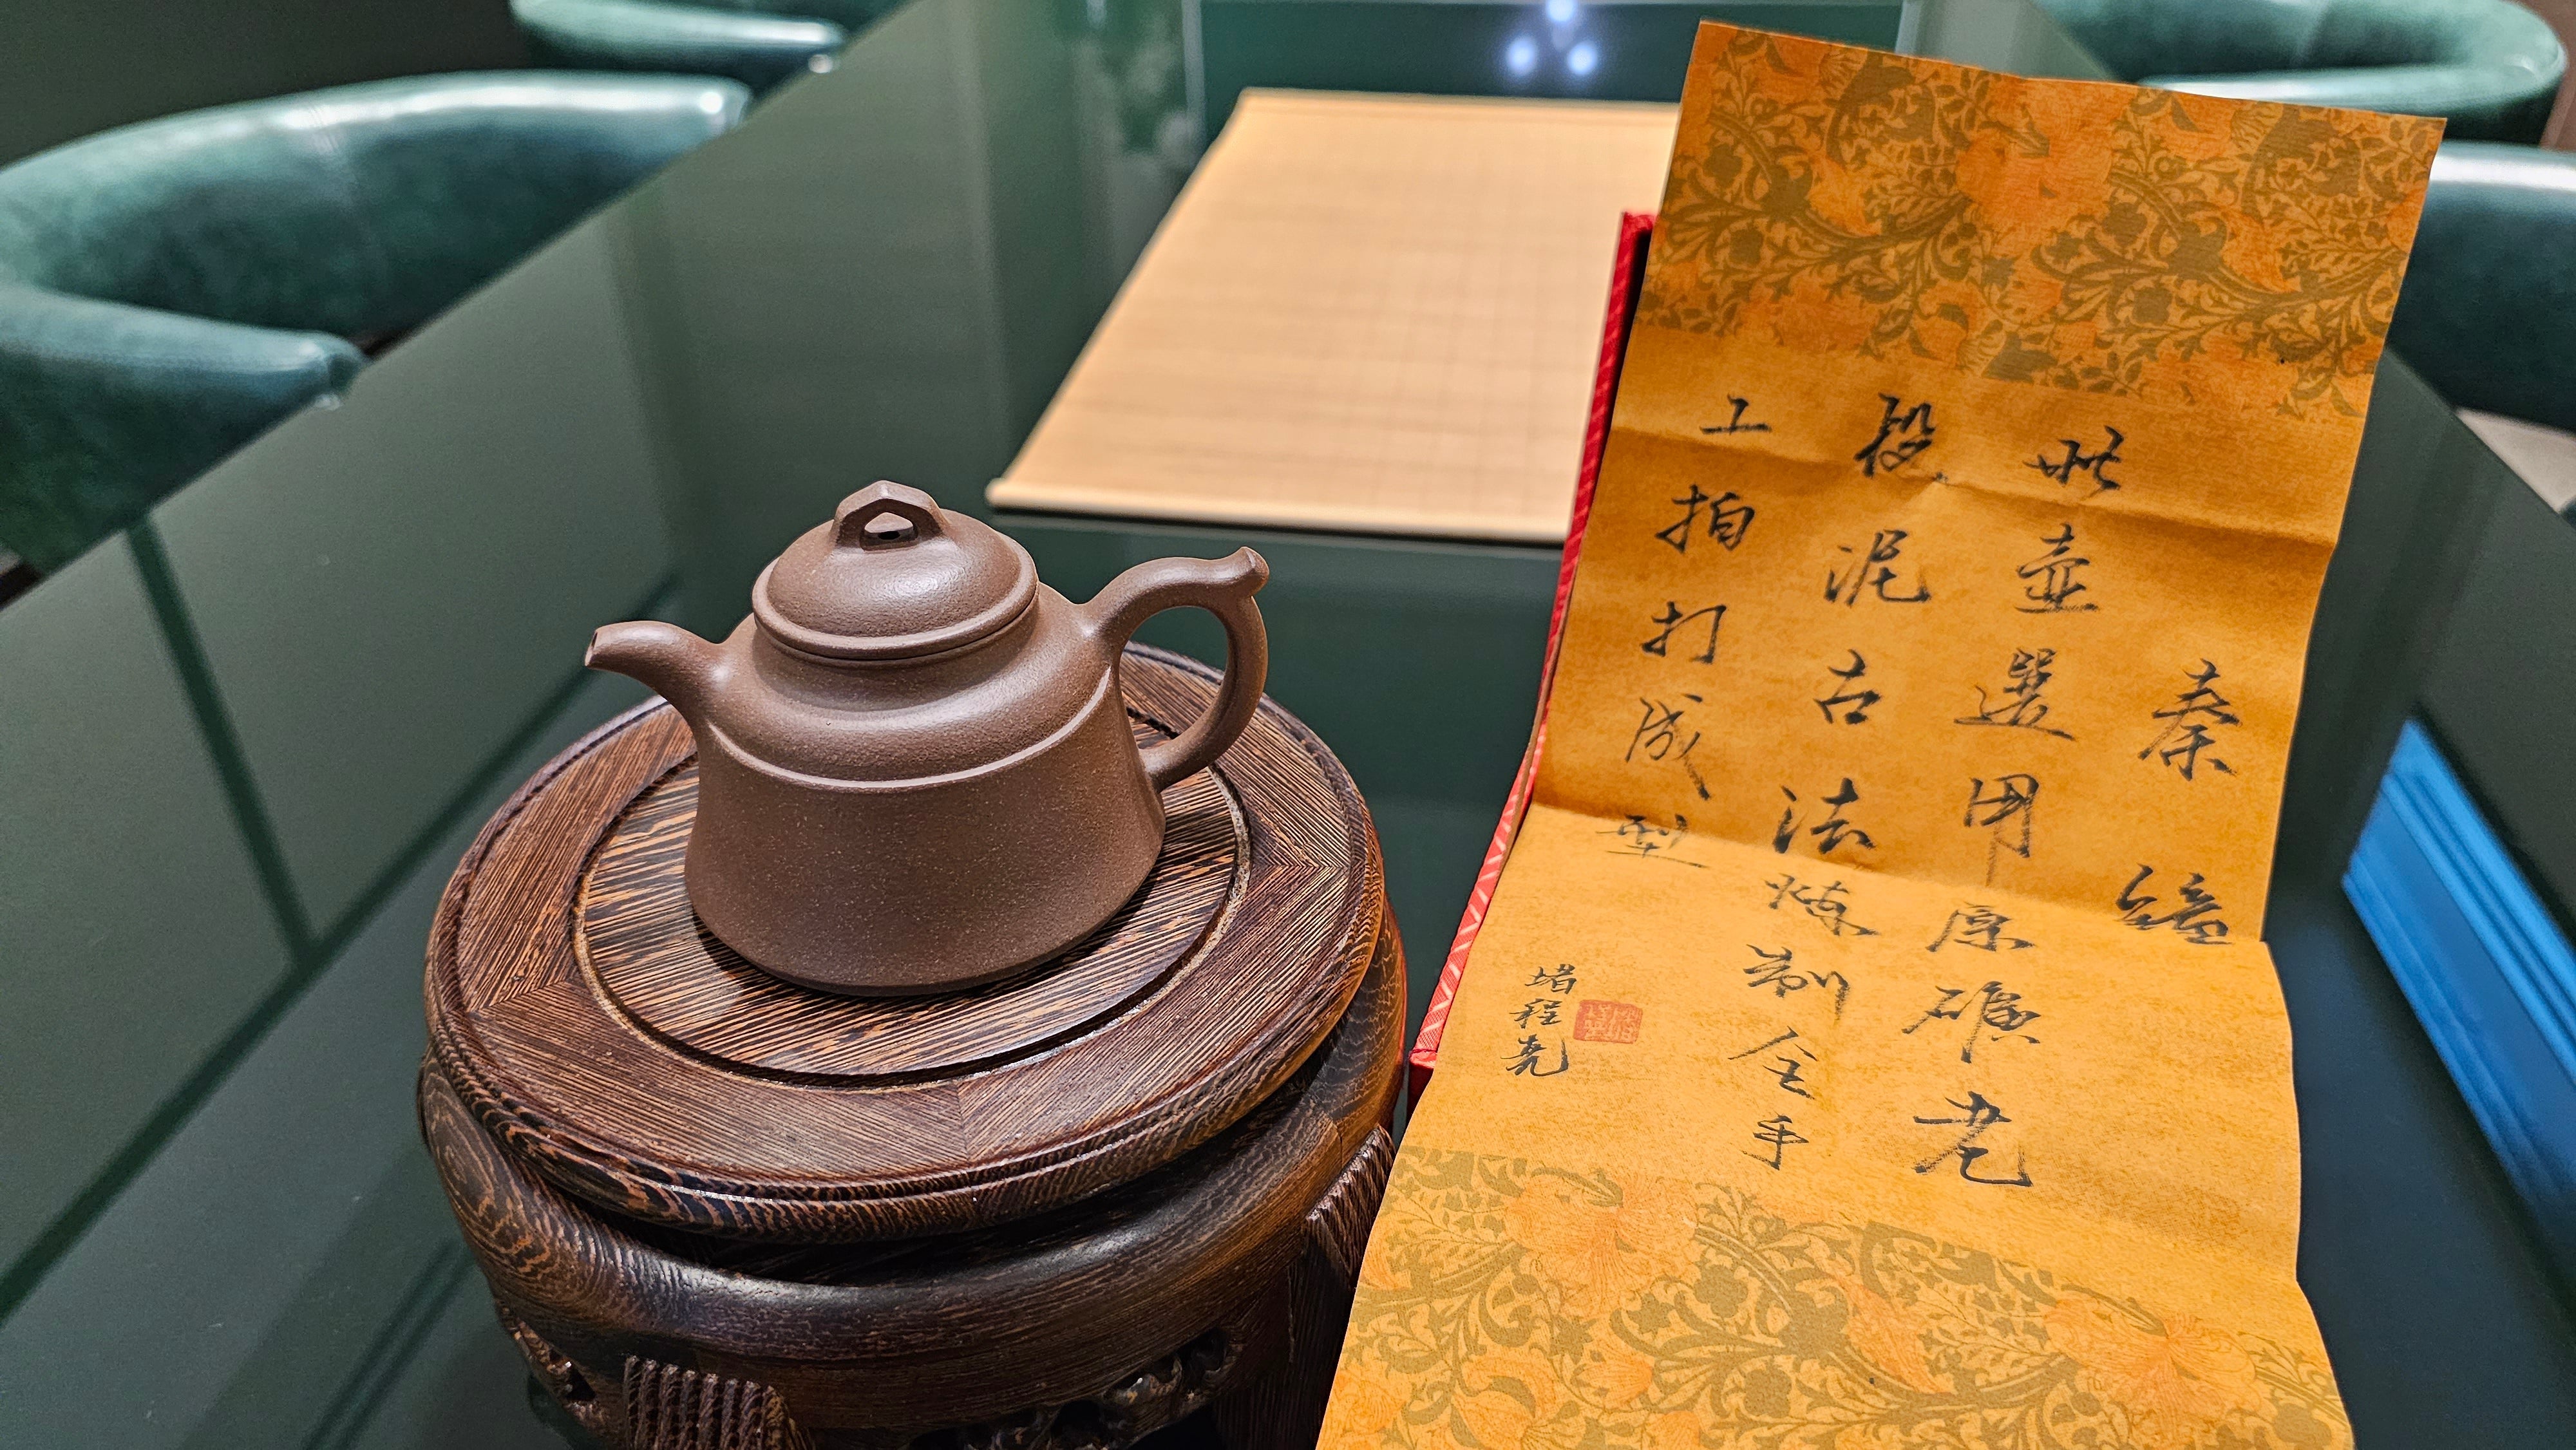 秦
此壶選用原礦老
段泥古法煉制全手
工拍打成型
堵程尧